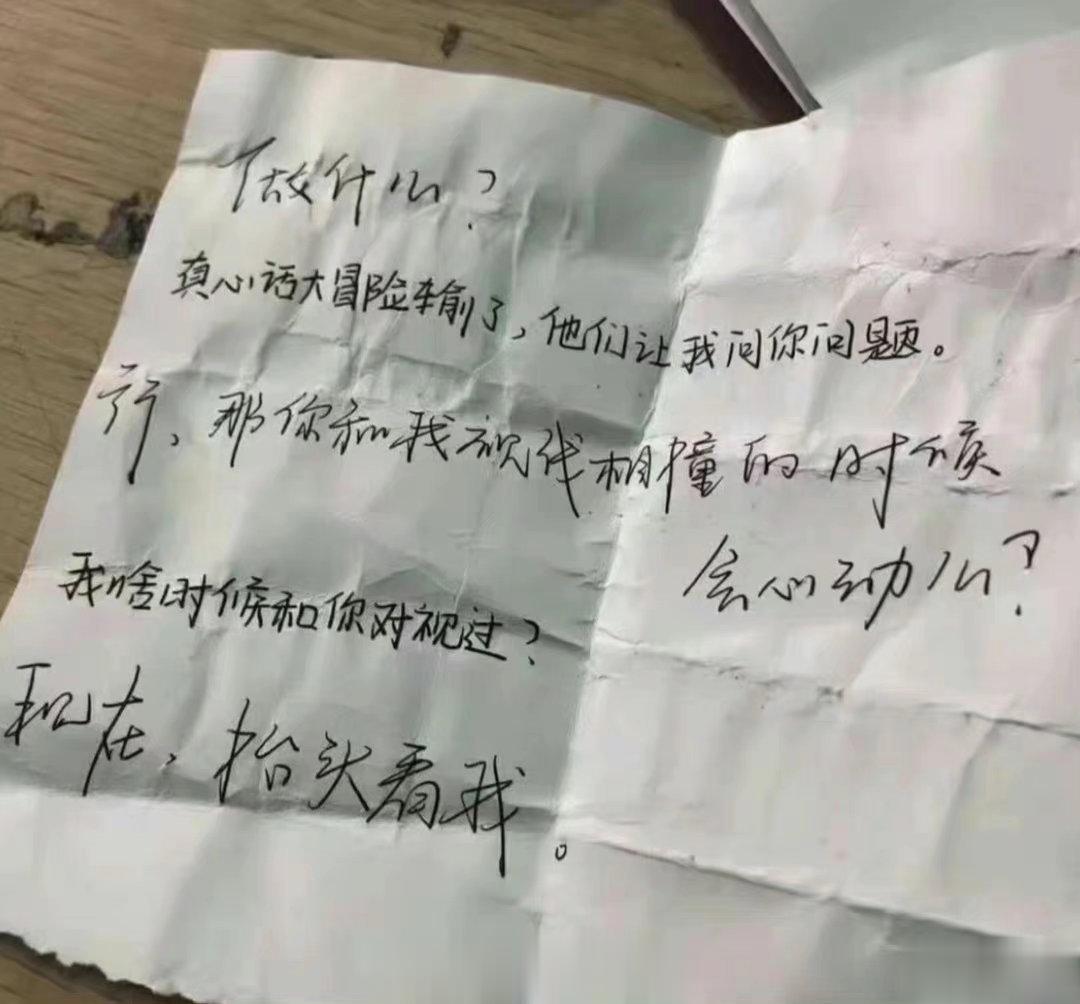 做什么？
真心话大冒险输了，他们让我问你问题。
行、那你和我视线相撞的时候
会心动么？
我啥时候和你对视过？
现在，抬头看我。